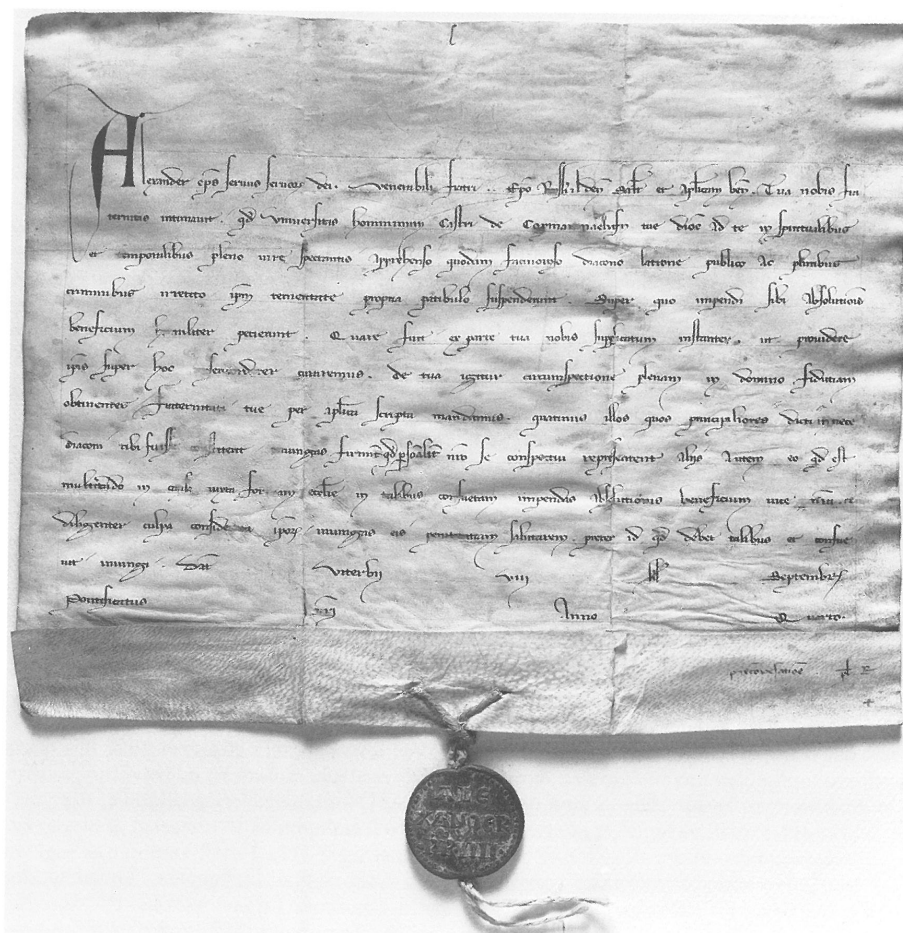 Alexander eps seruus seruoꝝ dei. Venerabili fratri .. Epo Roskilden salt et aplicam ben. Tua nobis fra
ternitas intimauit. qd Vniuersitas hominum Castri de Copmannahafn tue dioc ad te in spiritualibus
et temporalibus pleno iure spectantis apprehenso quodam facinoroso diacono latrone publico ac pluribus
criminibus irretito ipm temeritate propria patibulo suspenderunt. Super quo impendi sibi absolutionis
beneficium humiliter petierunt. Quare fuit ex parte tua nobis supplicatum instanter. ut prouidere
ipis super hoc misericorditer curaremus. de tua igitur circumspectione plenam in domino fiduciam
obtinentes fraternitati tue per aplica scripta mandamus. quatinus illos quos principaliores dicti in nece
diaconi tibi fuisse constiterit iniungas firmit qd psonalit nro se conspectui representent Aliis autem eo qd est
multitudo in causa iuxta formam ecclie in talibus consuetam impendas absolutionis beneficium uice nra et
diligenter culpa considerata ipoꝝ iniungas eis penitentiam salutarem. preter id qd debet talibus et consue
uit iniungi. Dat Viterbii VIII kl Septembr
Pontificatus nri Anno Quarto.
ALE
XANDER
PP IIII